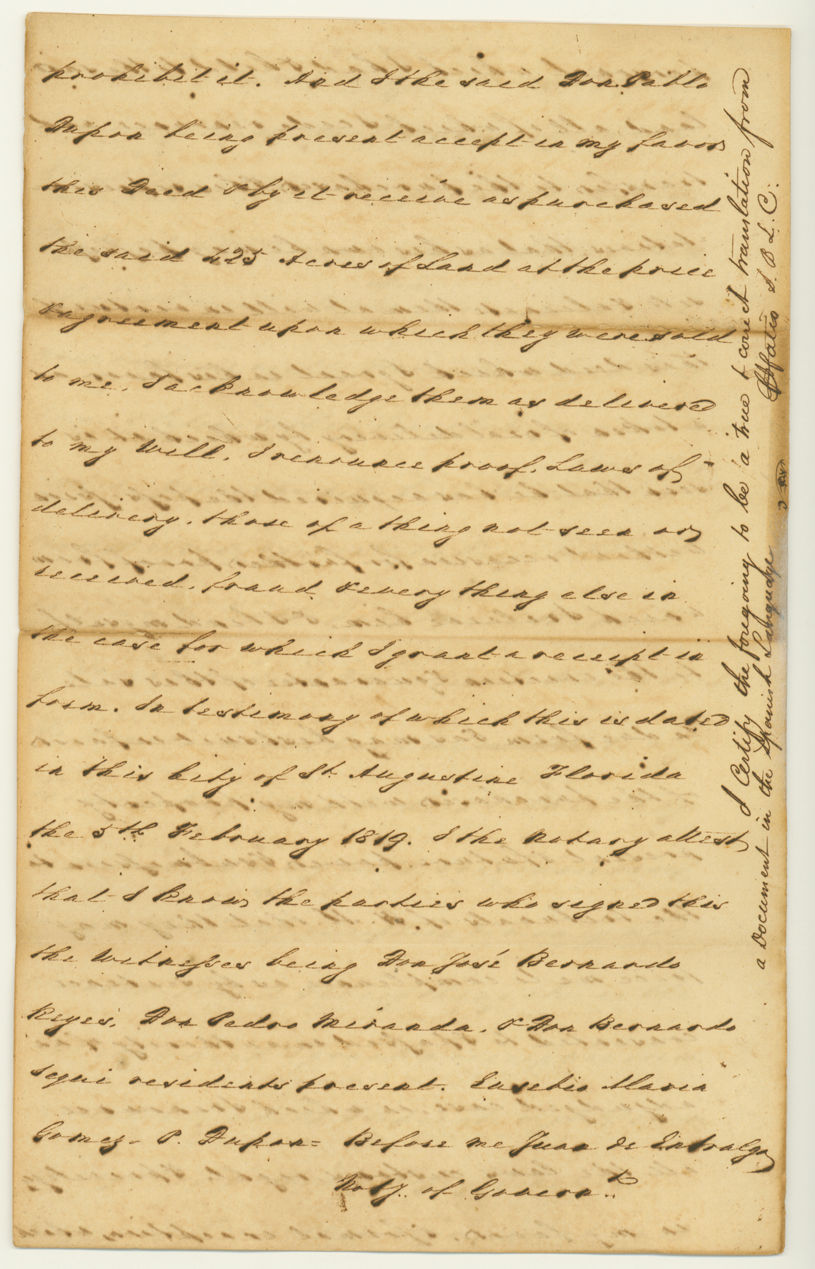 prohibit it. And I the said Don Pablo
Dupon being present accept in my favor
this Deed & by it receive as purchased
the said 425 Acres of Land at the price
& agreement upon which they were sold
to me. I acknowledge them as delivered
to my will. I renounce proof. Laws of
delivery. those of a thing not seen or
received. fraud & every thing else in
the case for which I grant a receipt in
form. In testimony of which this is dated
in this City of St. Augustine Florida
the 5th February 1819. I the Notary attest
that I know the parties who signed this
the Witnesses being Don José Bernardo
Reyes. Don Pedro Miranda. & Don Bernardo
Segui residents present. Eusebio Maria
Gomez - P. Dupon = Before me Juan de Entralgo
Noty. of Governt.
I Certify the foregoing to be a true & correct translation from
a Document in the Spanish Language
Fatio S. B. L. C.